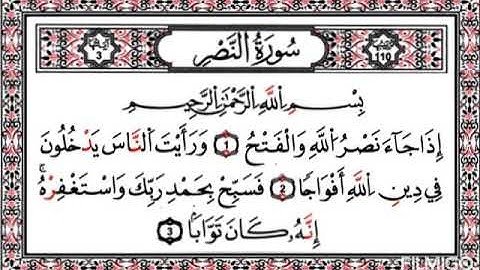 سُورَةُ النَّصْرِ
3
110
بِسْمِ اللَّهِ الرَّحْمَٰنِ الرَّحِيمِ
إِذَا جَآءَ نَصْرُ اللَّهِ وَالْفَتْحُ ١ وَرَأَيْتَ النَّاسَ يَدْخُلُونَ
فِي دِينِ اللَّهِ أَفْوَاجًا ٢ فَسَبِّحْ بِحَمْدِ رَبِّكَ وَاسْتَغْفِرْهُ ۚ
إِنَّهُ كَانَ تَوَّابًا ٣
FILMIGO